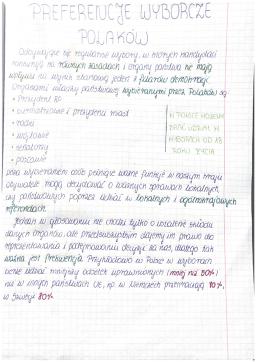 PREFERENCJE WYBORCZE
POLAKÓW
Odbywające się regularnie wybory, w których kandydaci
na równych zasadach i organy państwa nie mają
wpływu na wynik stanowią jeden z filarów demokracji.
Organami władzy państwowej wybieranymi przez Polaków są:
• Prezydent RP
• i prezydenci miast
• radni
• wójtowie
• senatorowie
• posłowie
W POLSCE MOŻEMY
BRAĆ UDZIAŁ W
WYBORACH OD 18
ROKU ŻYCIA
Poza wybieraniem osób pełniące ważne funkcje w naszym kraju
obywatele mogą decydować o ważnych sprawach lokalnych,
czy państwowych poprzez udział w lokalnych i ogólnokrajowych
referendach.
Jednak w głosowaniu nie chodzi tylko o ustalenie składu
danych organów, ale przede wszystkim dajemy im prawo do
reprezentowania i podejmowania decyzji za nas, dlatego tak
ważna jest frekwencja. Przykładowo w Polsce w wyborach
udział mniejszy odsetek uprawnionych (mniej niż 50%)
niż w innych państwach UE, np. w Niemczech 70%,
w Szwecji 80%.